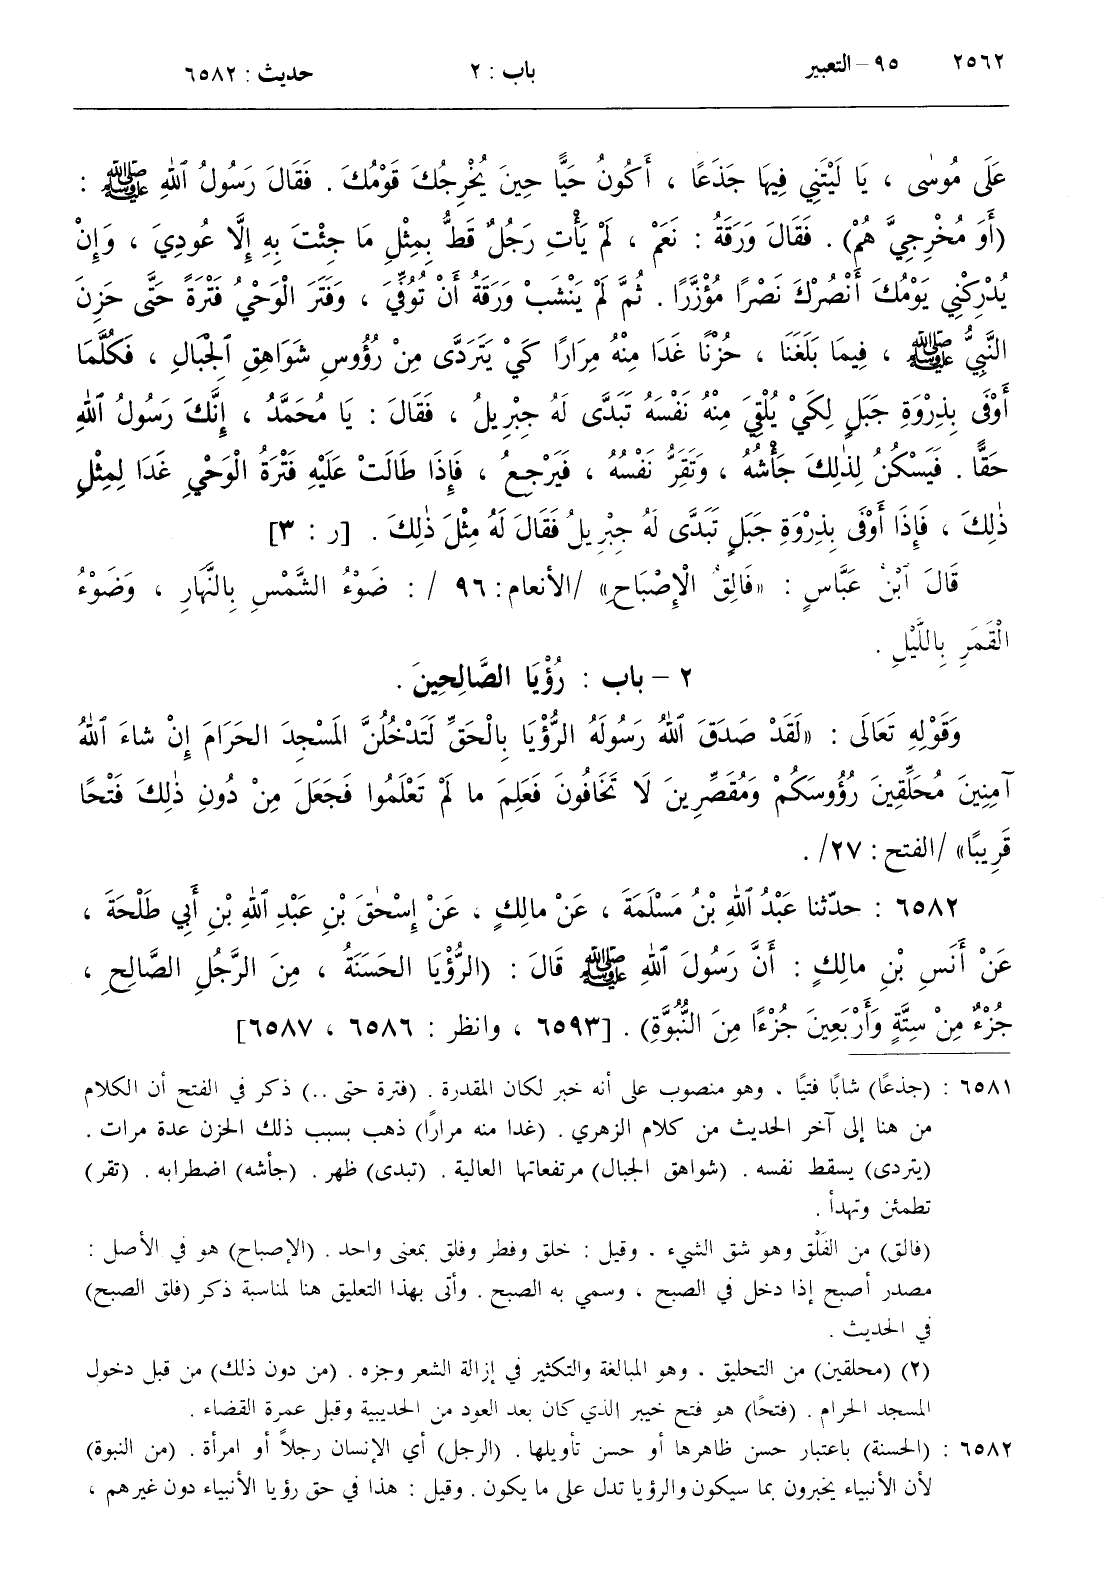 ٢٥٦٢ ٩٥ – التعبير باب : ٢ حديث : ٦٥٨٢
عَلَى مُوسٰى ، يَا لَيْتَنِي فِيهَا جَذَعًا ، أَكُونُ حَيًّا حِينَ يُخْرِجُكَ قَوْمُكَ . فَقَالَ رَسُولُ ٱللهِ ﷺ :
(أَوَ مُخْرِجِيَّ هُمْ) . فَقَالَ وَرَقَةُ : نَعَمْ ، لَمْ يَأْتِ رَجُلٌ قَطُّ بِمِثْلِ مَا جِئْتَ بِهِ إِلَّا عُودِيَ ، وَإِنْ
يُدْرِكْنِي يَوْمُكَ أَنْصُرْكَ نَصْرًا مُؤَزَّرًا . ثُمَّ لَمْ يَنْشَبْ وَرَقَةُ أَنْ تُوُفِّيَ ، وَفَتَرَ الْوَحْيُ فَتْرَةً حَتَّى حَزِنَ
النَّبِيُّ ﷺ ، فِيمَا بَلَغَنَا ، حُزْنًا غَدَا مِنْهُ مِرَارًا كَيْ يَتَرَدَّى مِنْ رُؤُوسِ شَوَاهِقِ ٱلْجِبَالِ ، فَكُلَّمَا
أَوْفَى بِذِرْوَةِ جَبَلٍ لِكَيْ يُلْقِيَ مِنْهُ نَفْسَهُ تَبَدَّى لَهُ جِبْرِيلُ ، فَقَالَ : يَا مُحَمَّدُ ، إِنَّكَ رَسُولُ ٱللهِ
حَقًّا . فَيَسْكُنُ لِذٰلِكَ جَأْشُهُ ، وَتَقِرُّ نَفْسُهُ ، فَيَرْجِعُ ، فَإِذَا طَالَتْ عَلَيْهِ فَتْرَةُ الْوَحْيِ غَدَا لِمِثْلِ
ذٰلِكَ ، فَإِذَا أَوْفَى بِذِرْوَةِ جَبَلٍ تَبَدَّى لَهُ جِبْرِيلُ فَقَالَ لَهُ مِثْلَ ذٰلِكَ . [ر : ٣]
قَالَ ٱبْنُ عَبَّاسٍ : «فَالِقُ الْإِصْبَاحِ» /الأنعام: ٩٦ / : ضَوْءُ الشَّمْسِ بِالنَّهَارِ ، وَضَوْءُ
الْقَمَرِ بِاللَّيْلِ .
٢ – باب : رُؤْيَا الصَّالِحِينَ .
وَقَوْلِهِ تَعَالَى : «لَقَدْ صَدَقَ ٱللهُ رَسُولَهُ الرُّؤْيَا بِالْحَقِّ لَتَدْخُلُنَّ المَسْجِدَ الحَرَامَ إِنْ شاءَ ٱللهُ
آمِنِينَ مُحَلِّقِينَ رُؤُوسَكُمْ وَمُقَصِّرِينَ لَا تَخَافُونَ فَعَلِمَ ما لَمْ تَعْلَمُوا فَجَعَلَ مِنْ دُونِ ذٰلِكَ فَتْحًا
قَرِيبًا» /الفتح : ٢٧/ .
٦٥٨٢ : حدّثنا عَبْدُ ٱللهِ بْنُ مَسْلَمَةَ ، عَنْ مالِكٍ ، عَنْ إِسْحٰقَ بْنِ عَبْدِ ٱللهِ بْنِ أَبِي طَلْحَةَ ،
عَنْ أَنَسِ بْنِ مالِكٍ : أَنَّ رَسُولَ ٱللهِ ﷺ قَالَ : (الرُّؤْيَا الحَسَنَةُ ، مِنَ الرَّجُلِ الصَّالِحِ ،
جُزْءٌ مِنْ سِتَّةٍ وَأَرْبَعِينَ جُزْءًا مِنَ النُّبُوَّةِ) . [٦٥٩٣ ، وانظر : ٦٥٨٦ ، ٦٥٨٧]
٦٥٨١ : (جذعًا) شابًا فتيًا ، وهو منصوب على أنه خبر لكان المقدرة . (فترة حتى ..) ذكر في الفتح أن الكلام
من هنا إلى آخر الحديث من كلام الزهري . (غدا منه مرارًا) ذهب بسبب ذلك الحزن عدة مرات .
(يتردى) يسقط نفسه . (شواهق الجبال) مرتفعاتها العالية . (تبدى) ظهر . (جأشه) اضطرابه . (تقر)
تطمئن وتهدأ .
(فالق) من الفَلْق وهو شق الشيء . وقيل : خلق وفطر وفلق بمعنى واحد . (الإصباح) هو في الأصل :
مصدر أصبح إذا دخل في الصبح ، وسمي به الصبح . وأتى بهذا التعليق هنا لمناسبة ذكر (فلق الصبح)
في الحديث .
(٢) (محلقين) من التحليق . وهو المبالغة والتكثير في إزالة الشعر وجزه . (من دون ذلك) من قبل دخول
المسجد الحرام . (فتحًا) هو فتح خيبر الذي كان بعد العود من الحديبية وقبل عمرة القضاء .
٦٥٨٢ : (الحسنة) باعتبار حسن ظاهرها أو حسن تأويلها . (الرجل) أي الإنسان رجلاً أو امرأة . (من النبوة)
لأن الأنبياء يخبرون بما سيكون والرؤيا تدل على ما يكون . وقيل : هذا في حق رؤيا الأنبياء دون غيرهم ،